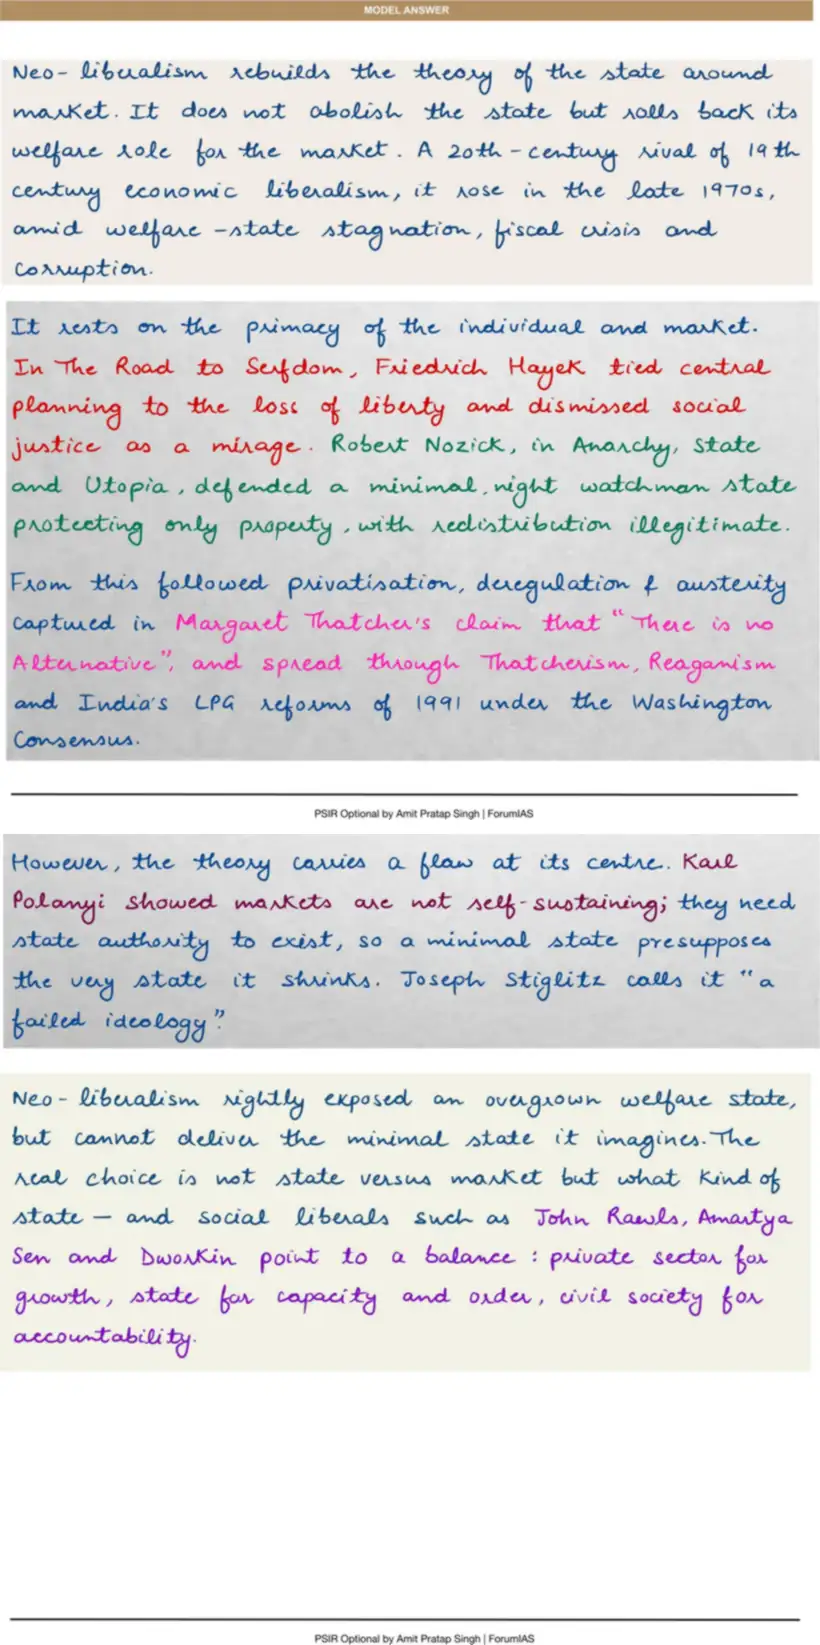 MODEL ANSWER
Neo-liberalism rebuilds the theory of the state around
market. It does not abolish the state but rolls back its
welfare role for the market. A 20th-century rival of 19th
century economic liberalism, it rose in the late 1970s,
amid welfare-state stagnation, fiscal crisis and
corruption.
It rests on the primacy of the individual and market.
In The Road to Serfdom, Friedrich Hayek tied central
planning to the loss of liberty and dismissed social
justice as a mirage. Robert Nozick, in Anarchy, State
and Utopia, defended a minimal, night watchman state
protecting only property, with redistribution illegitimate.
From this followed privatisation, deregulation & austerity
captured in Margaret Thatcher's claim that "There is no
Alternative", and spread through Thatcherism, Reaganism
and India's LPG reforms of 1991 under the Washington
Consensus.
PSIR Optional by Amit Pratap Singh | ForumIAS
However, the theory carries a flaw at its centre. Karl
Polanyi showed markets are not self-sustaining; they need
state authority to exist, so a minimal state presupposes
the very state it shrinks. Joseph Stiglitz calls it "a
failed ideology".
Neo-liberalism rightly exposed an overgrown welfare state,
but cannot deliver the minimal state it imagines. The
real choice is not state versus market but what kind of
state — and social liberals such as John Rawls, Amartya
Sen and Dworkin point to a balance : private sector for
growth, state for capacity and order, civil society for
accountability.
PSIR Optional by Amit Pratap Singh | ForumIAS